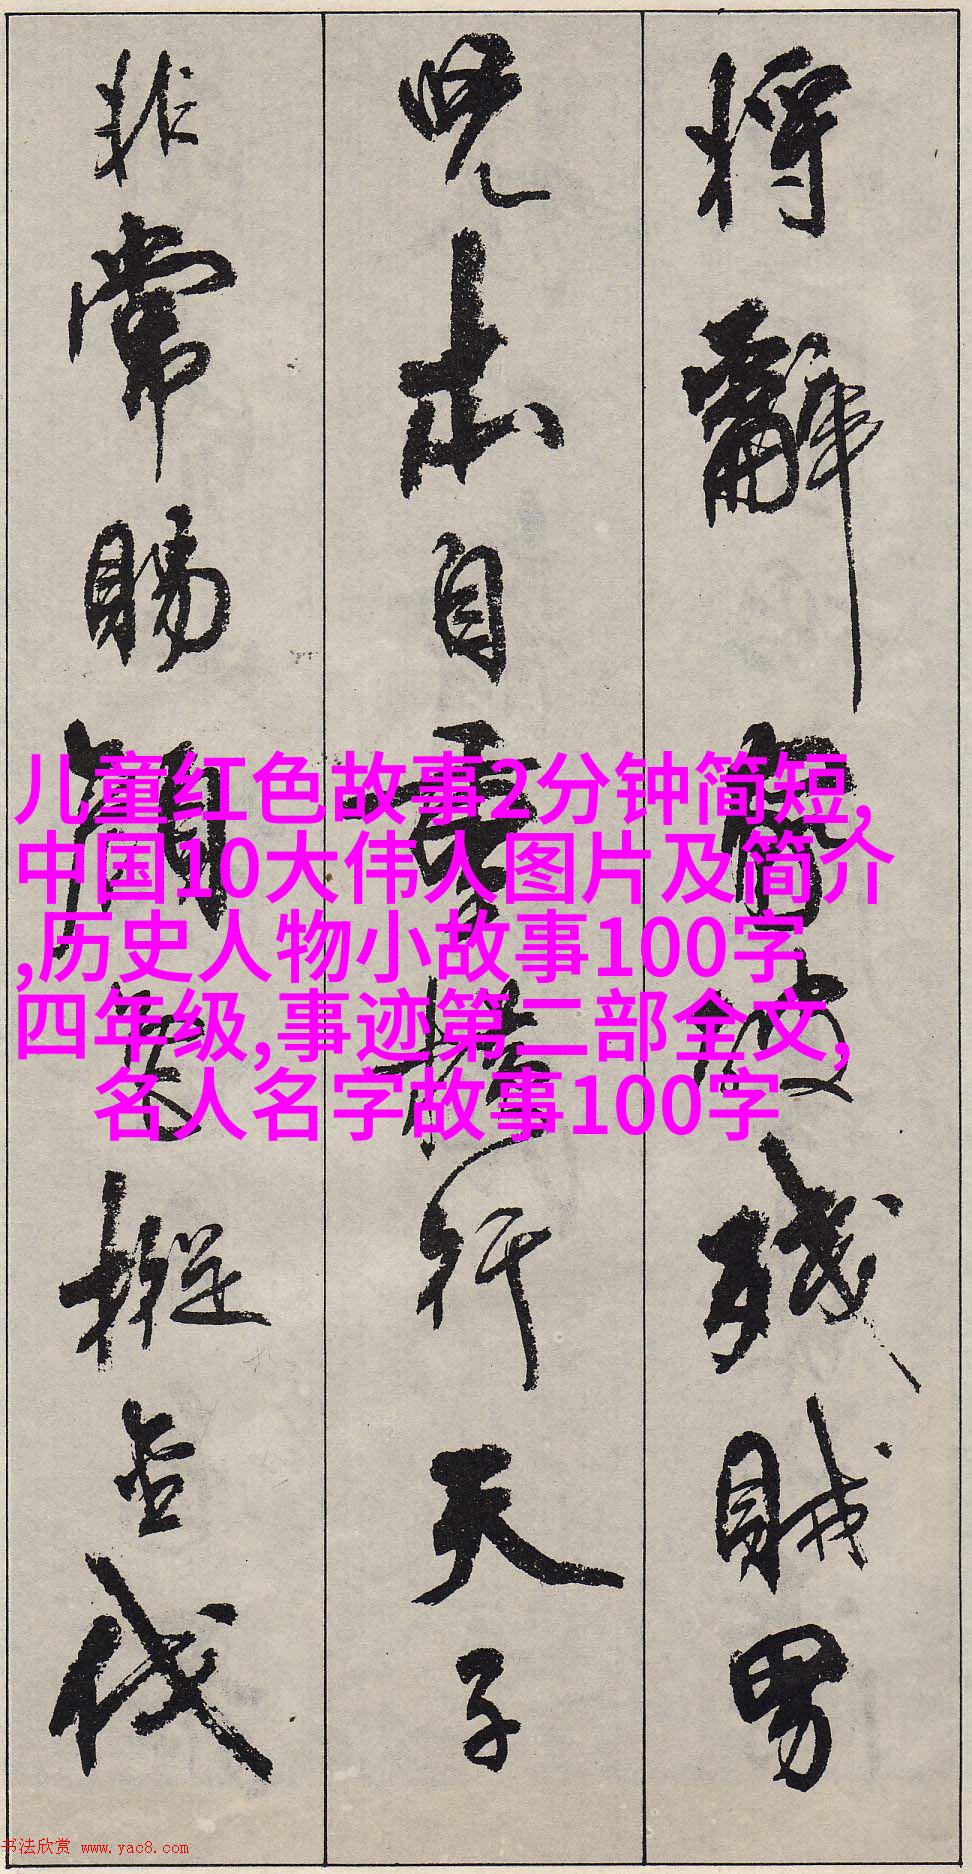 將辭家破殘賊男
兒本自重橫行天子
非常賜顏色摐金伐
儿童红色故事2分钟简短,
中国10大伟人图片及简介
,历史人物小故事100字
四年级,事迹第二部全文,
名人名字故事100字
书法欣赏 www.yac8.com